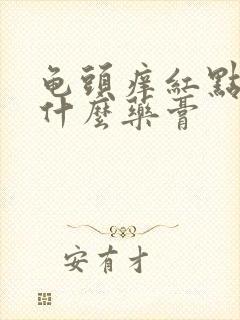 龟頭痒紅點
什麼藥膏
安有才